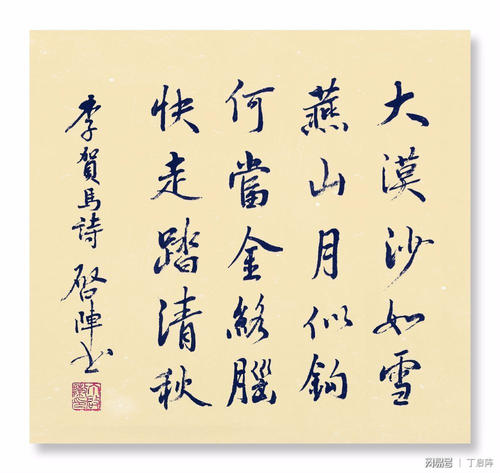 大漠沙如雪
燕山月似鈎
何當金絡腦
快走踏清秋
李賀馬詩 启陣书
网易号 | 丁启阵